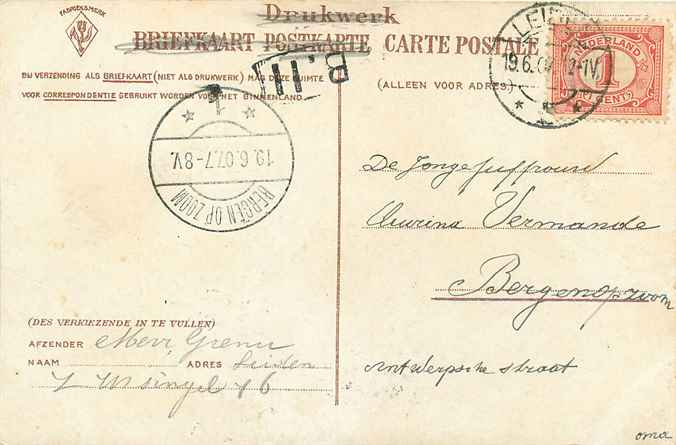 FABRIEKSMERK
Drukwerk
BRIEFKAART POSTKARTE CARTE POSTALE
BIJ VERZENDING ALS BRIEFKAART (NIET ALS DRUKWERK) MAG DEZE RUIMTE
VOOR CORRESPONDENTIE GEBRUIKT WORDEN VOOR HET BINNENLAND.
(ALLEEN VOOR ADRES.)
LEIDEN
19.6.07 12-1V.
NEDERLAND
1
CENT
III B
19.6.07.7-8V.
BERGEN OP ZOOM
De Jongejuffrouw
Vermande
Bergen op zoom
Antwerpsche straat
(DES VERKIEZENDE IN TE VULLEN)
AFZENDER Mevr,
NAAM ADRES Leiden
singel 76
oma